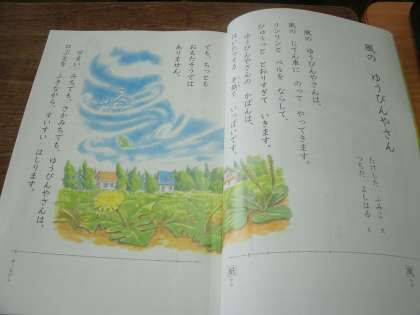 風の ゆうびんやさん
たけした ふみこ 文
つちだ よしはる 絵
風の ゆうびんやさんは、
風の じてん車に のって やってきます。
リンリンと ベルを ならして、
ひゅうっと とおりすぎて いきます。
ゆうびんやさんの かばんは、
はいたつする てがみで いっぱいです。
でも、ちっとも
おもたそうでは
ありません。
せまい みちでも、さかみちでも、ゆうびんやさんは、
口ぶえを ふきながら、すいすい はしります。
風
紙